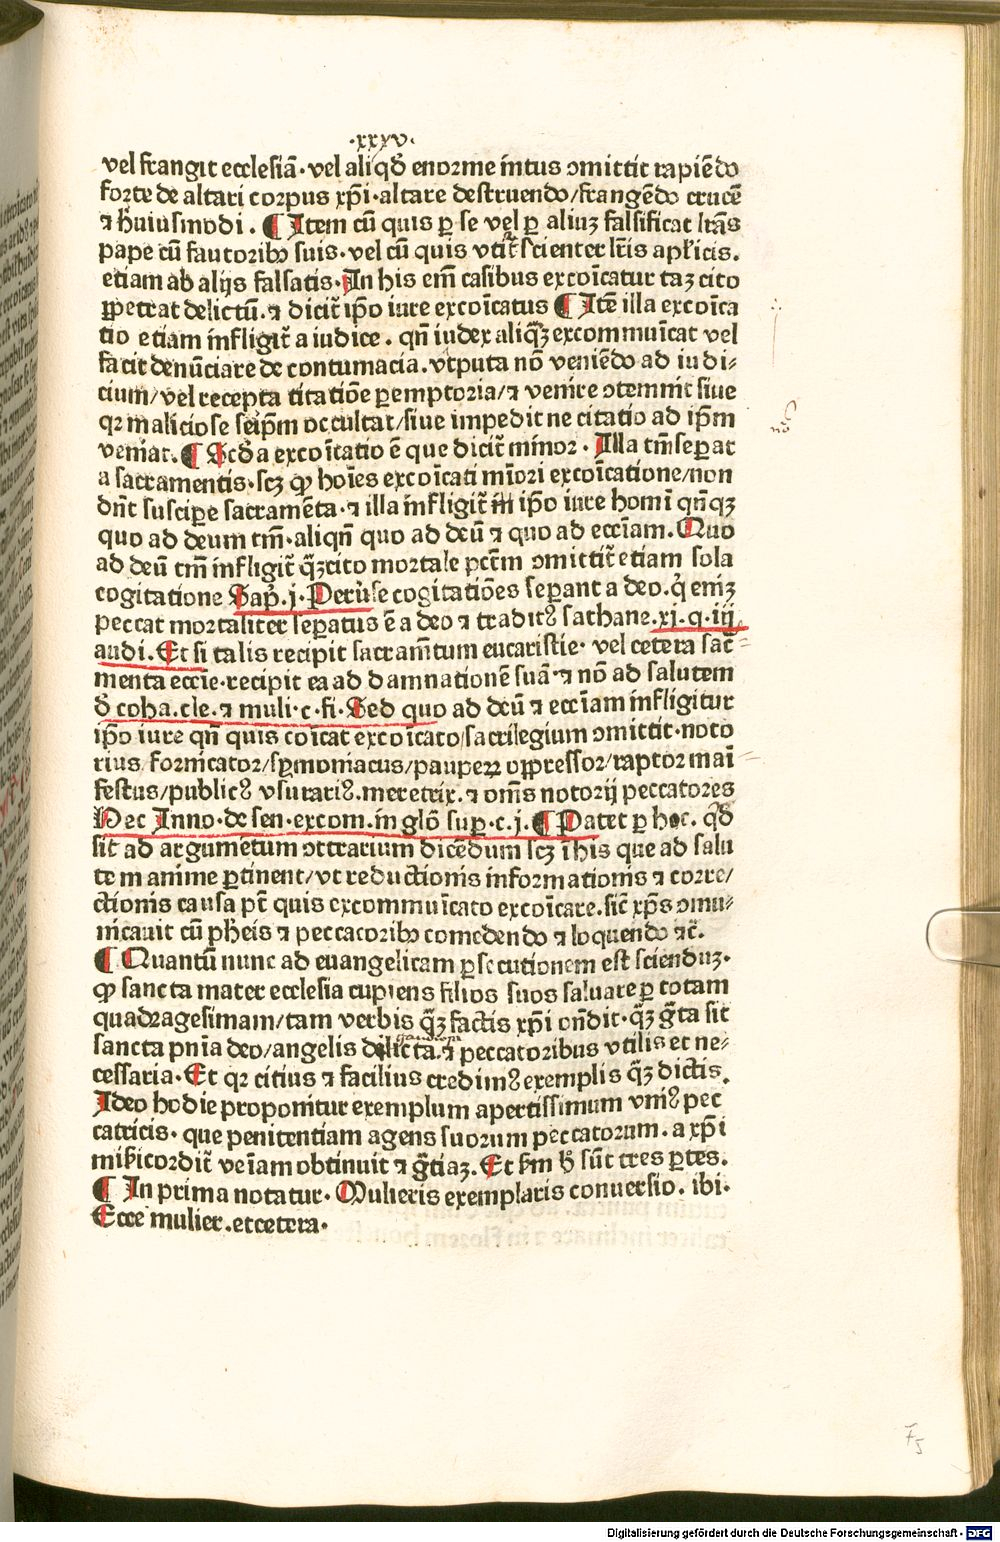 .xxxv.
vel frangit ecclesiā·vel aliqđ enorme intus ɔmittit rapiēdo
forte de altari corpus xp̄i·altare destruendo/frangēdo crucē
⁊ huiusmodi. ¶ Item cū quis ꝑ se vel ꝑ aliuꝫ falsificat lr̄as
pape cū fautoribꝰ suis·vel cū quis vtit᷑ scienter lr̄is apl̄icis.
etiam ab alijs falsatis·In his em̄ casibus excoīcatur taꝫ cito
ꝑpetrat delictū.⁊ dicit᷑ ip̄o iure excoīcatus ¶ Itē illa excoīca
tio etiam infligit᷑ a iudice. qn̄ iudex aliq̄ꝫ excommunīcat vel
facit denūciare de contumacia.vtputa nō veniēdo ad iudi⸗
cium/vel recepta titatiōe ꝑemptoria/⁊ venire ɔtemnit siue
qꝛ maliciose seip̄m occultat/siue impedit ne citatio ad ip̄m
veniat.¶ Scđa excoīcatio ē que dicit᷑ minor. Illa tm̄ seꝑat
a sacramentis·scꝫ ꝙ hoīes excoīcati mīori excoīcatione/non
dn̄t suscipe sacramēta·⁊ illa infligit᷑ in ip̄o iure homī qn̄qꝫ
quo ad deum tm̄·aliqn̄ quo ad deū ⁊ quo ad eccīam.Quo
ad deū tm̄ infligit᷑ q̄ꝫcito mortale pctm̄ ɔmittit᷑ etiam sola
cogitatione Sap̄.j.Peruse cogitatiōes seꝑant a deo.q̇ enīꝫ
peccat mortaliter seꝑatus ē a deo ⁊ traditꝰ sathane.xj.q.iij.
audi.Et si talis recipit sacramn̄tum eucaristie· vel cetera sac̄⸗
menta eccīe·recipit ea ad damnationē suā·⁊ nō ad salutem
đ coha.cle.⁊ muli·c·fi·Sed quo ad deū ⁊ eccīam infligitur
ip̄o iure qn̄ quis coīcat excoīcato/sacrilegium ɔmittit·noto
rius fornicator/symoniacus/pauperꝝ oppressor/raptor maī⸗
festus/publicꝰ vsurariꝰ.meretrix.⁊ om̄s notorij peccatores
Hec Inno·de sen·excom.in glō sup·c.j.¶ Patet ꝑ hoc. qđ
sit ad argumētum ɔtrarium dicēdum scꝫ ī his que ad salu
tem anime ꝑtinent/vt reductionis informationis ⁊ corre/
ctionis causa pt̄ quis excommuīcato excoīcare.sic̄ xp̄s ɔmu⸗
nicauit cū pheīs ⁊ peccatoribꝰ comedendo ⁊ loquendo ⁊c̄.
¶ Quantū nunc ad euangelicam ꝑsecutionem est scienduꝫ·
ꝙ sancta mater ecclesia cupiens filios suos saluare ꝑ totam
quadragesimam/tam verbis q̄ꝫ factis xp̄i on̄dit·q̄ꝫ g̃ta sit
sancta pn̄ia deo/angelis delicta.⁊ peccatoribus vtilis et ne⸗
cessaria·Et qꝛ citius ⁊ facilius credimꝰ exemplis q̄ꝫ dictis.
Ideo hodie proponitur exemplum apertissimum vniꝰ pec
catricis· que penitentiam agens suorum peccatorum.a xp̄i
mīkicordit᷑ veīam obtinuit ⁊ g̃tiaꝫ.Et km̄ ħ sūt tres ꝑtes.
¶ In prima notatur· Mulieris exemplaris conuersio. ibi·
Ecce mulier.etcetera·
75
Digitalisierung gefördert durch die Deutsche Forschungsgemeinschaft - DFG